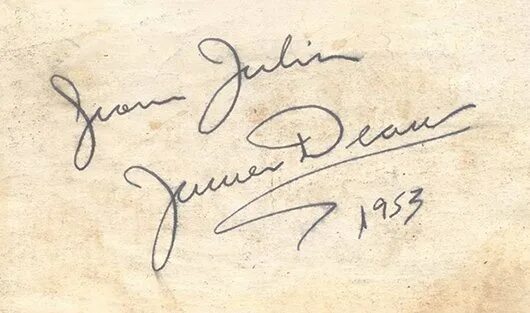 Juan Julin
James Dean
1953